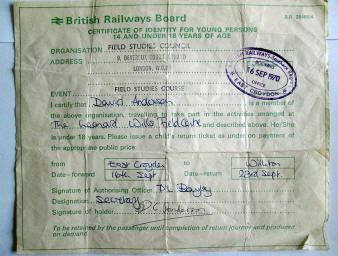 British Railways Board
B.R.
CERTIFICATE OF IDENTITY FOR YOUNG PERSONS
14 AND UNDER 18 YEARS OF AGE
ORGANISATION FIELD STUDIES COUNCIL
ADDRESS 9, DEVEREUX COURT, STRAND
LONDON, W.C.2
BOOKING
16 SEP 1970
OFFICE
EAST CROYDON
EVENT FIELD STUDIES COURSE
I certify that David Anderson is a member of
the above organisation, travelling to take part in the activities arranged at
The Leonard Wills Field Centre and described above. He/She
is under 18 years. Please issue a child's return ticket as under on payment of
the appropriate public price:
from East Croydon to Williton
Date—forward 16th Sept. Date—return 23rd Sept.
Signature of Authorising Officer
Designation Secretary
Signature of holder D C Anderson
To be retained by the passenger until completion of return journey and produced
on demand